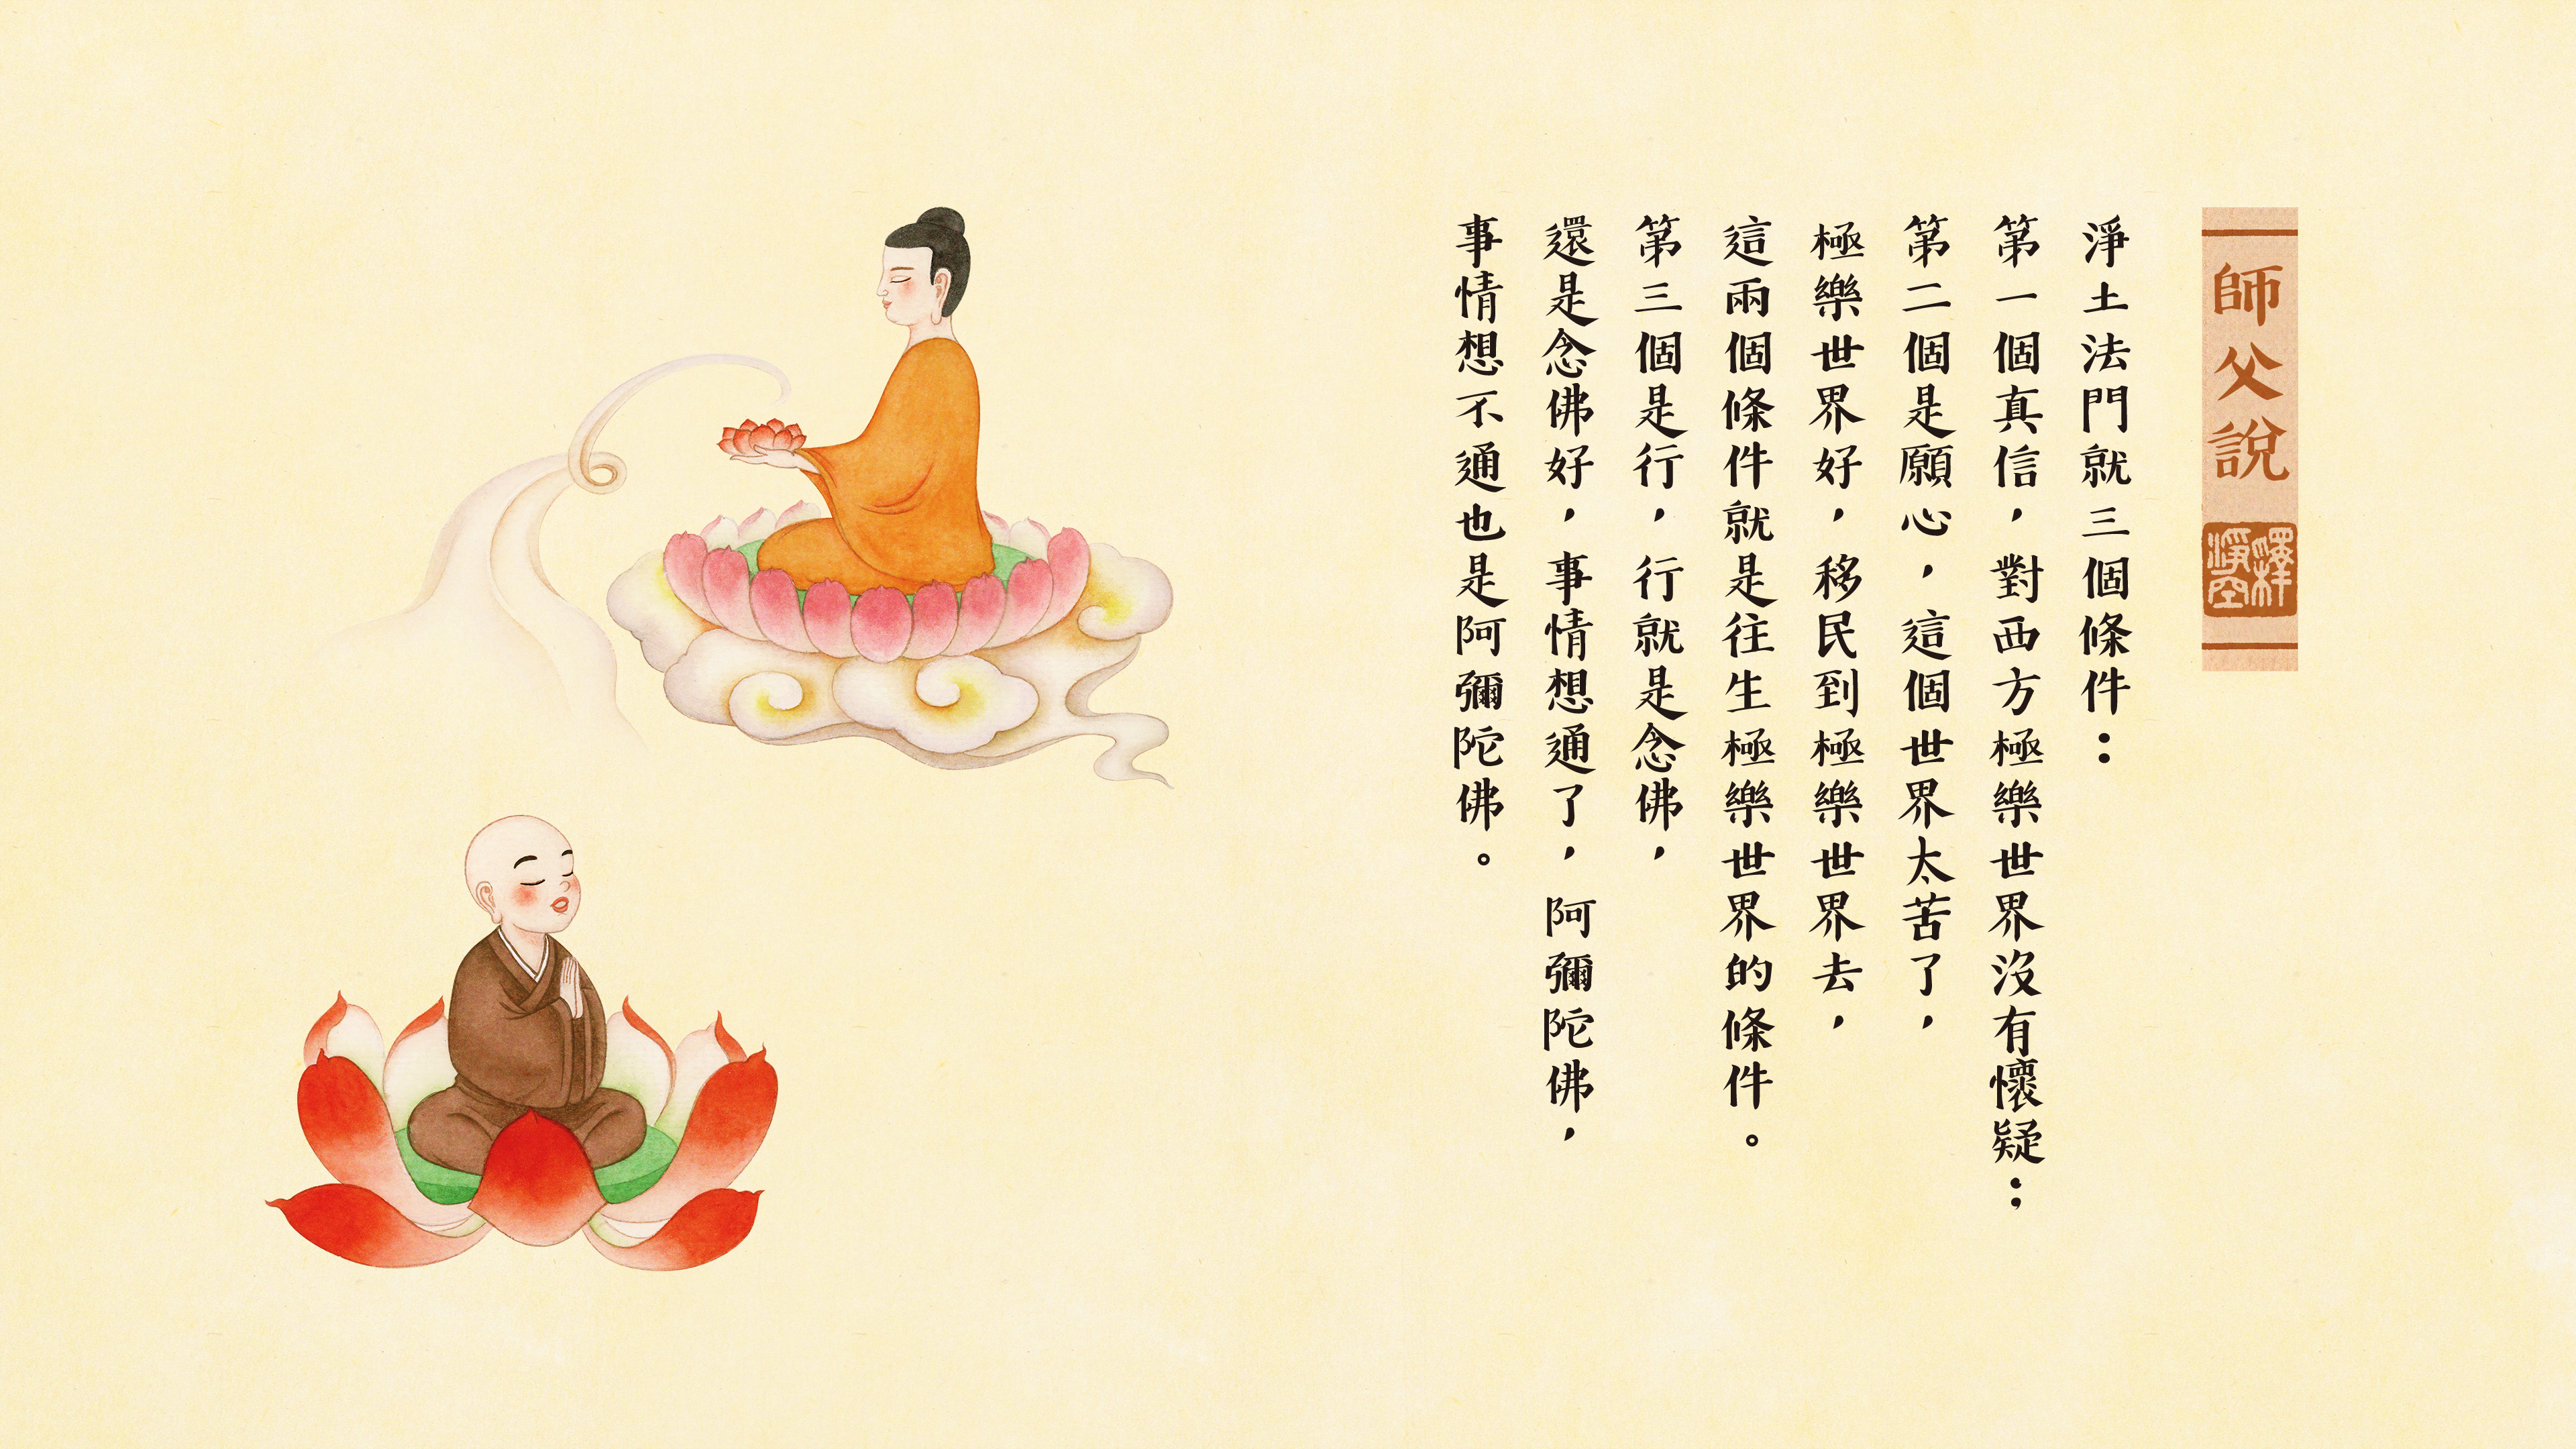 師父說
釋淨空
淨土法門就三個條件：
第一個真信，對西方極樂世界沒有懷疑；
第二個是願心，這個世界太苦了，
極樂世界好，移民到極樂世界去，
這兩個條件就是往生極樂世界的條件。
第三個是行，行就是念佛，
還是念佛好，事情想通了，阿彌陀佛，
事情想不通也是阿彌陀佛。